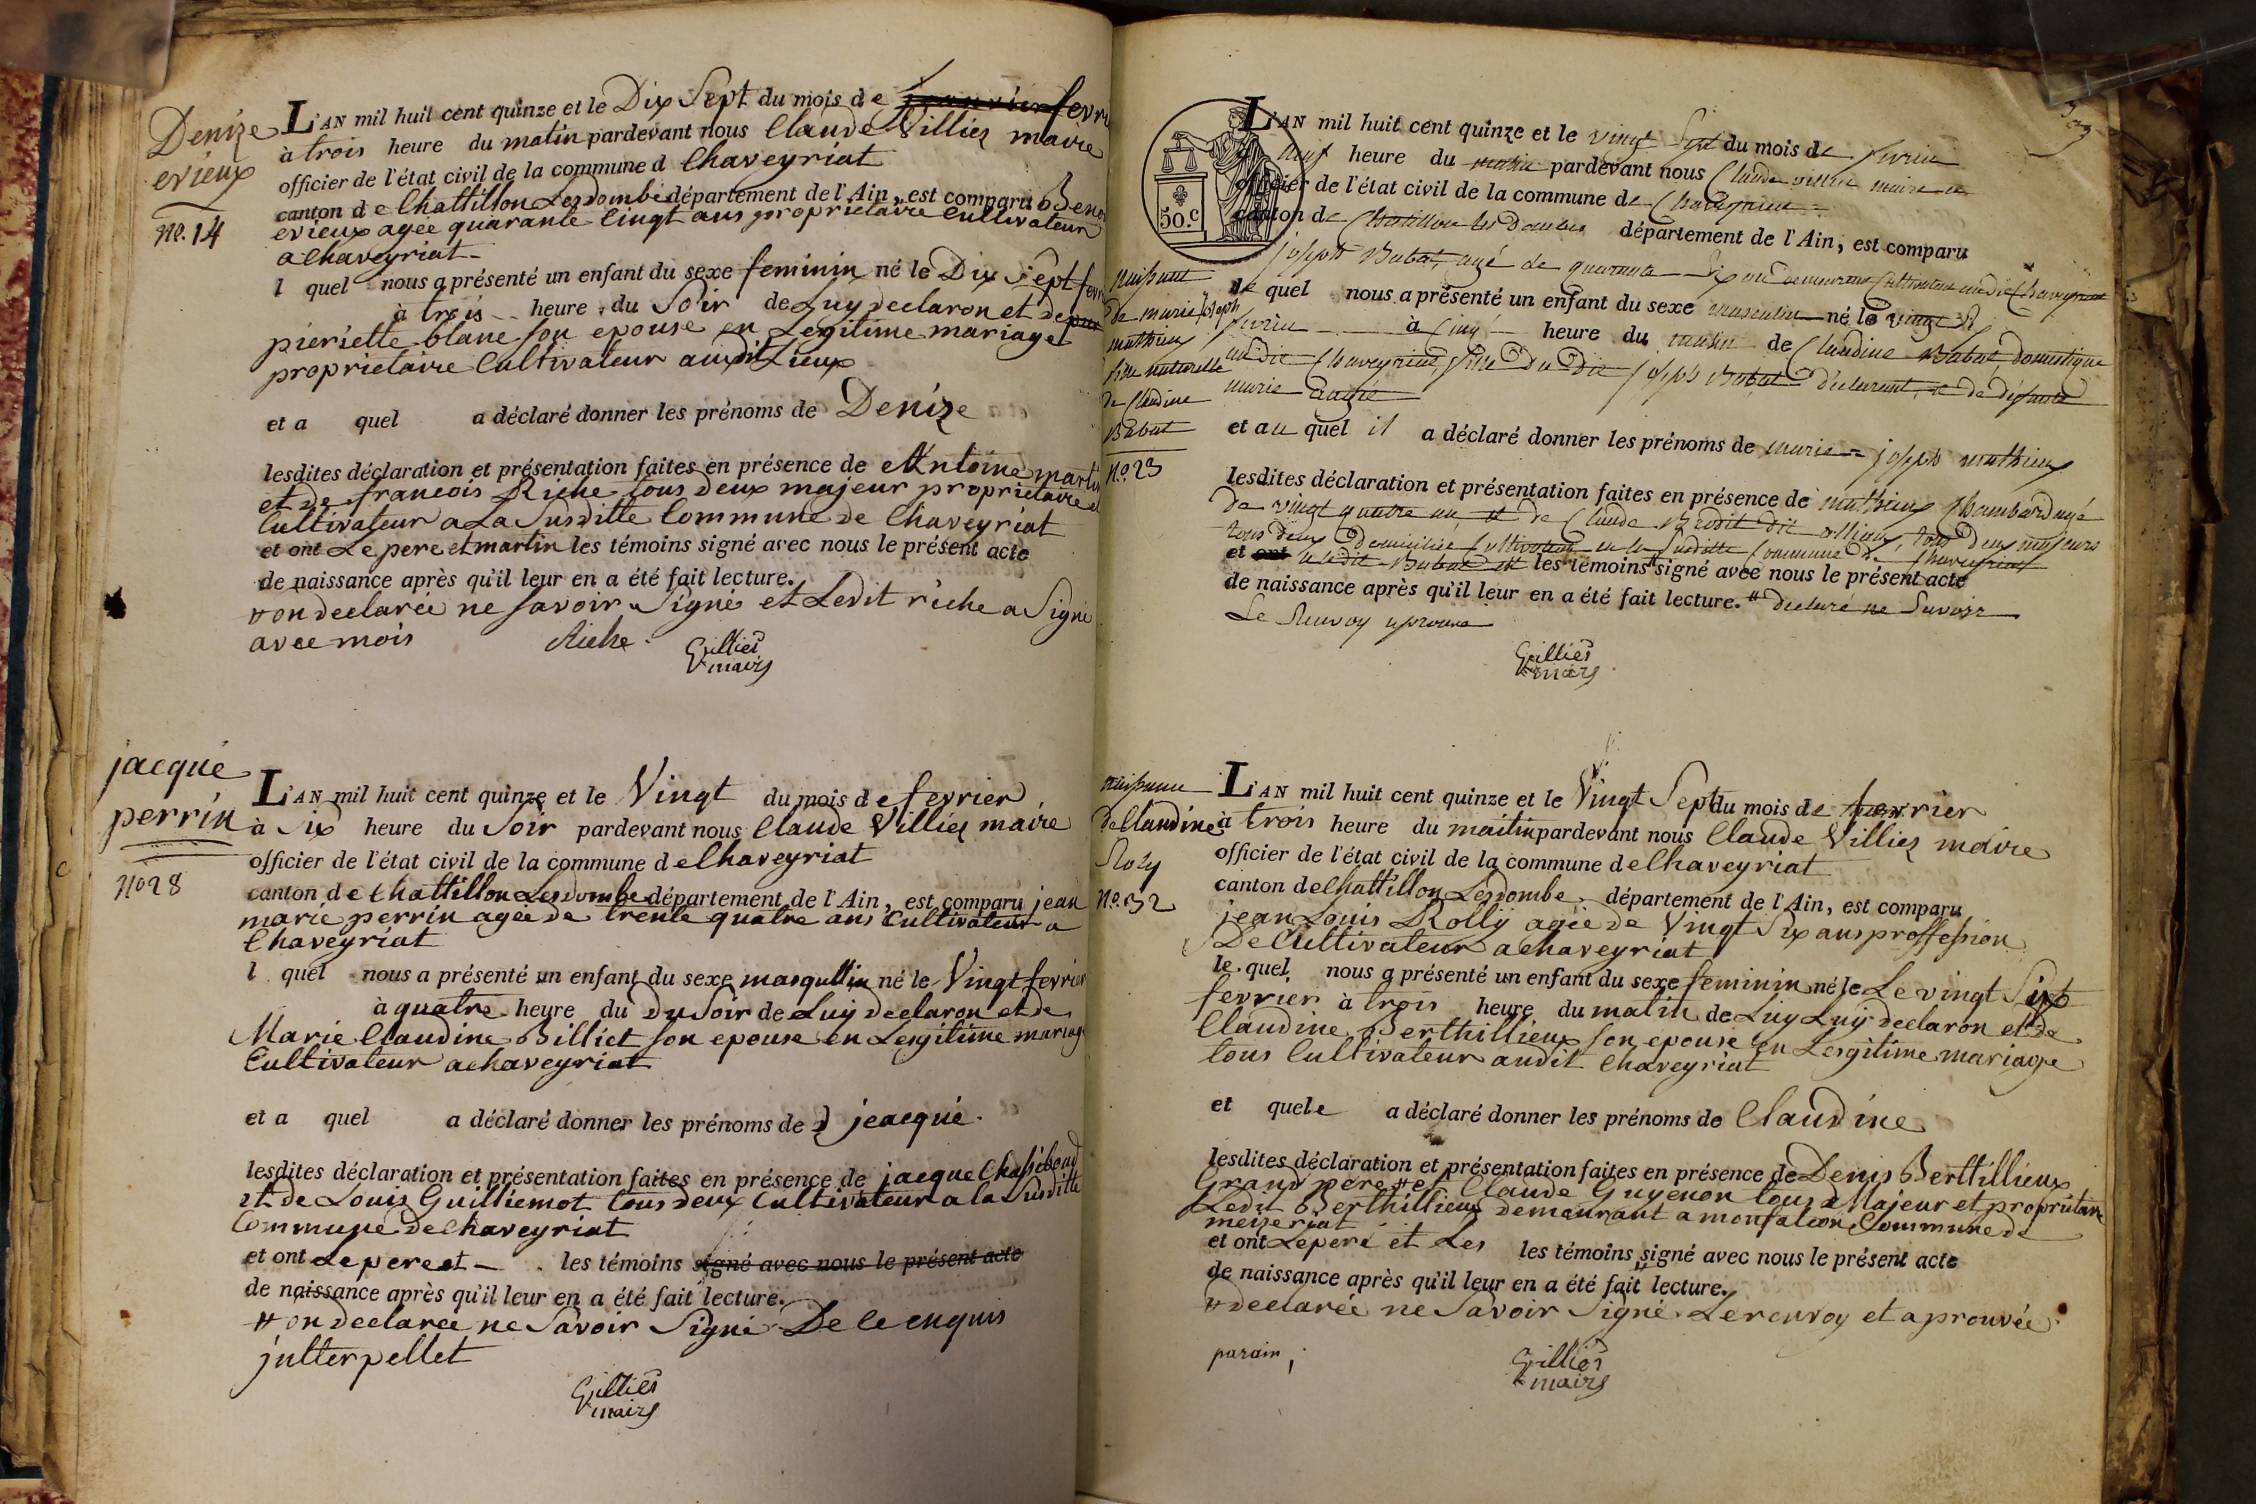 Denize
evieux
No. 14
L'AN mil huit cent quinze et le Dix Sept du mois de janvier fevri
à trois heure du matin pardevant nous Claude Villiez maire
officier de l'état civil de la commune d Chaveyriat
canton de Chattillon Lesdombe département de l'Ain, est comparu Benoi
evieux agée quarante Cingt ans proprietaire Cultivateur
a Chaveyriat
l quel nous a présenté un enfant du sexe feminin né le Dix Sept fevr
à trois heure du Soir de Luy declaron et de
pierrette blanc son epouse en Legitime mariage et
proprietaire Cultivateur audit Lieux
et a quel a déclaré donner les prénoms de Denize
lesdites déclaration et présentation faites en présence de Antoine martin
et de francois Riche tous deux majeur proprietaire et
Cultivateur a La Susditte Commune de Chaveyriat
et ont Le pere et martin les témoins signé avec nous le présent acte
de naissance après qu'il leur en a été fait lecture.
# on declarée ne savoir Signé et Ledit riche a Signé
avec mois Riche Villiés
maire
jacque
perrin
No 28
L'AN mil huit cent quinze et le Vingt du mois de fevrier
à Six heure du Soir pardevant nous Claude Villiez maire
officier de l'état civil de la commune de Chaveyriat
canton de Chattillon Lesdombe département de l'Ain, est comparu jean
marie perrin agée de trente quatre ans Cultivateur a
Chaveyriat
l quel nous a présenté un enfant du sexe masqullin né le Vingt fevrier
à quatre heure du Du Soir de Luy declaron et de
Marie Claudine Billiet son epouse en Lesgitime mariag
Cultivateur a chaveyriat
et a quel a déclaré donner les prénoms de jeacque
lesdites déclaration et présentation faites en présence de jacque Chassiboud
et de Louis Guilliemot tous deux Cultivateur a la Susditte
Commune de Chaveyriat
et ont Le pere et les témoins signé avec nous le présent acte
de naissance après qu'il leur en a été fait lecture.
# on declarée ne Savoir Signé De ce enquis
julterpellet
Villiés
maire
50.c
naissance
de marie joseph
mathieu
fils naturelle
de Claudine
Babat
No. 23
L'AN mil huit cent quinze et le vingt Sept du mois de fevrier
neuf heure du matin pardevant nous Claude villiez maire
officier de l'état civil de la commune de Chaveyriat
canton de Chatillon les Dombes département de l'Ain, est comparu
joseph Babat, agé de quarante Six ans demeurant Cultivateur audit Chaveyriat
le quel nous a présenté un enfant du sexe masculin né le vingt
fevrier à Cinq heure du matin de Claudine Babat, domestique
audit Chaveyriat, fille du dit joseph Babat declarant, et de défunte
marie
et au quel il a déclaré donner les prénoms de marie joseph mathieu
lesdites déclaration et présentation faites en présence de mathieu Chambard agé
de vingt quatre an et de Claude Brodit dit ollion, tous deux majeurs
tous deux Domiciliée Cultivateur en la Susditte Commune de Chaveyriat
et ont ledit Babat et les témoins signé avec nous le présent acte
de naissance après qu'il leur en a été fait lecture. # declaré ne Savoir
Le Renvoy aprouvé
Villiés
maire
naissance
de Claudine
Roly
No. 32
L'AN mil huit cent quinze et le Vingt Sept du mois de fevrier
à trois heure du maitin pardevant nous Claude Villiez maire
officier de l'état civil de la commune de Chaveyriat
canton de Chattillon Lesdombe département de l'Ain, est comparu
jean Louis Rolly agée de Vingt Six ans proffession
De Cultivateur a chaveyriat
le quel nous a présenté un enfant du sexe feminin né le Le vingt Sept
fevrier à trois heure du matin de Luy Luy declaron et de
Claudine Berthillieux son epouse en Lesgitime mariage
tous Cultivateur audit Chaveyriat
et quele a déclaré donner les prénoms de Claudine
lesdites déclaration et présentation faites en présence de Denis Berthillieux
Grand pere # et Claude Guyenon tous 2 Majeur et proprietaire
Ledit Berthillieux demeurant a monfalcon Commune de
mezeriat
et ont Le peré et Les les témoins signé avec nous le présent acte
de naissance après qu'il leur en a été fait lecture.
# declarée ne Savoir Signé Le renvoy et aprouvée
parain,
Villiés
maire